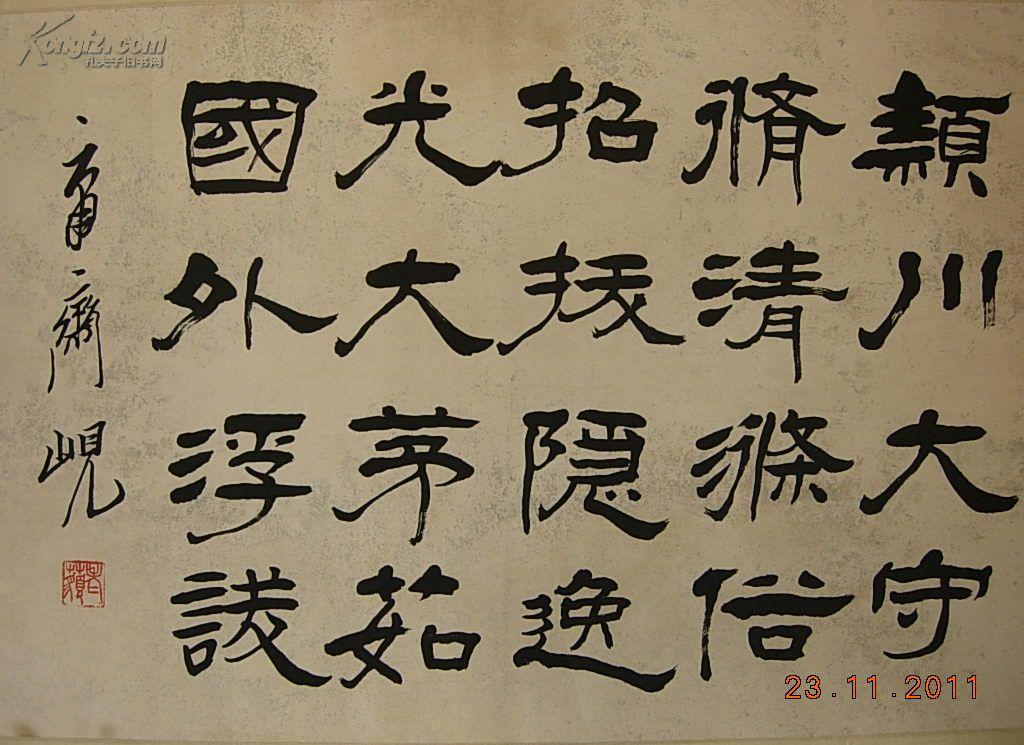 Kongfz.com
孔夫子旧书网
潁川大守
脩清滌俗
招拔隱逸
光大茅茹
國外浮
庸齋峴
23.11.2011